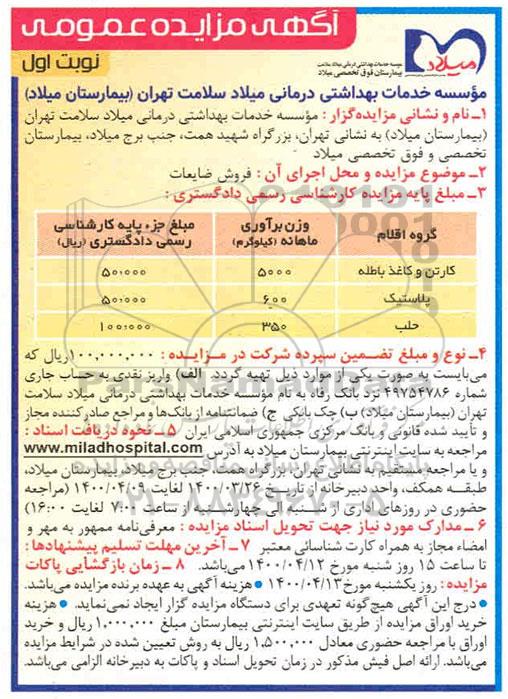 آگهی مزایده عمومی
میلاد
موسسه خدمات بهداشتی درمانی میلاد سلامت
بیمارستان فوق تخصصی میلاد
نوبت اول
مؤسسه خدمات بهداشتی درمانی میلاد سلامت تهران (بیمارستان میلاد)
۱ـ نام و نشانی مزایده‌گزار : مؤسسه خدمات بهداشتی درمانی میلاد سلامت تهران
(بیمارستان میلاد) به نشانی تهران، بزرگراه شهید همت، جنب برج میلاد، بیمارستان
تخصصی و فوق تخصصی میلاد
۲ـ موضوع مزایده و محل اجرای آن : فروش ضایعات
۳ـ مبلغ پایه مزایده کارشناسی رسمی دادگستری :
گروه اقلام وزن برآوری ماهانه (کیلوگرم) مبلغ جزء پایه کارشناسی رسمی دادگستری (ریال)
کارتن و کاغذ باطله ۵۰۰۰ ۵۰/۰۰۰
پلاستیک ۶۰۰ ۵۰/۰۰۰
حلب ۳۵۰ ۱۰۰/۰۰۰
۴ـ نوع و مبلغ تضمین سپرده شرکت در مزایده : ۱۰۰,۰۰۰,۰۰۰ ریال که
می‌بایست به صورت یکی از موارد ذیل تهیه گردد. الف) واریز نقدی به حساب جاری
شماره ۴۹۷۵۴۷۸۶ نزد بانک رفاه به نام مؤسسه خدمات بهداشتی درمانی میلاد سلامت
تهران (بیمارستان میلاد) ب) چک بانکی ج) ضمانتنامه از بانک‌ها و مراجع صادرکننده مجاز
و تأیید شده قانونی و بانک مرکزی جمهوری اسلامی ایران ۵ـ نحوه دریافت اسناد :
مراجعه به سایت اینترنتی بیمارستان میلاد به آدرس www.miladhospital.com
و یا مراجعه مستقیم به نشانی تهران، بزرگراه همت، جنب برج میلاد، بیمارستان میلاد،
طبقه همکف، واحد دبیرخانه از تاریخ ۱۴۰۰/۰۳/۲۶ لغایت ۱۴۰۰/۰۴/۰۹ (مراجعه
حضوری در روزهای اداری از شنبه الی چهارشنبه از ساعت ۷:۰۰ لغایت ۱۶:۰۰)
۶ ـ مدارک مورد نیاز جهت تحویل اسناد مزایده : معرفی‌نامه ممهور به مهر و
امضاء مجاز به همراه کارت شناسائی معتبر ۷ـ آخرین مهلت تسلیم پیشنهادها :
تا ساعت ۱۵ روز شنبه مورخ ۱۴۰۰/۰۴/۱۲ می‌باشد. ۸ ـ زمان بازگشایی پاکات
مزایده : روز یکشنبه مورخ ۱۴۰۰/۰۴/۱۳ • هزینه آگهی به عهده برنده مزایده می‌باشد.
• درج این آگهی هیچ‌گونه تعهدی برای دستگاه مزایده گزار ایجاد نمی‌نماید. • هزینه
خرید اوراق مزایده از طریق سایت اینترنتی بیمارستان مبلغ ۱,۰۰۰,۰۰۰ ریال و خرید
اوراق با مراجعه حضوری معادل ۱,۵۰۰,۰۰۰ ریال به روش تعیین شده در شرایط مزایده
می‌باشد. ارائه اصل فیش مذکور در زمان تحویل اسناد و پاکات به دبیرخانه الزامی می‌باشد.